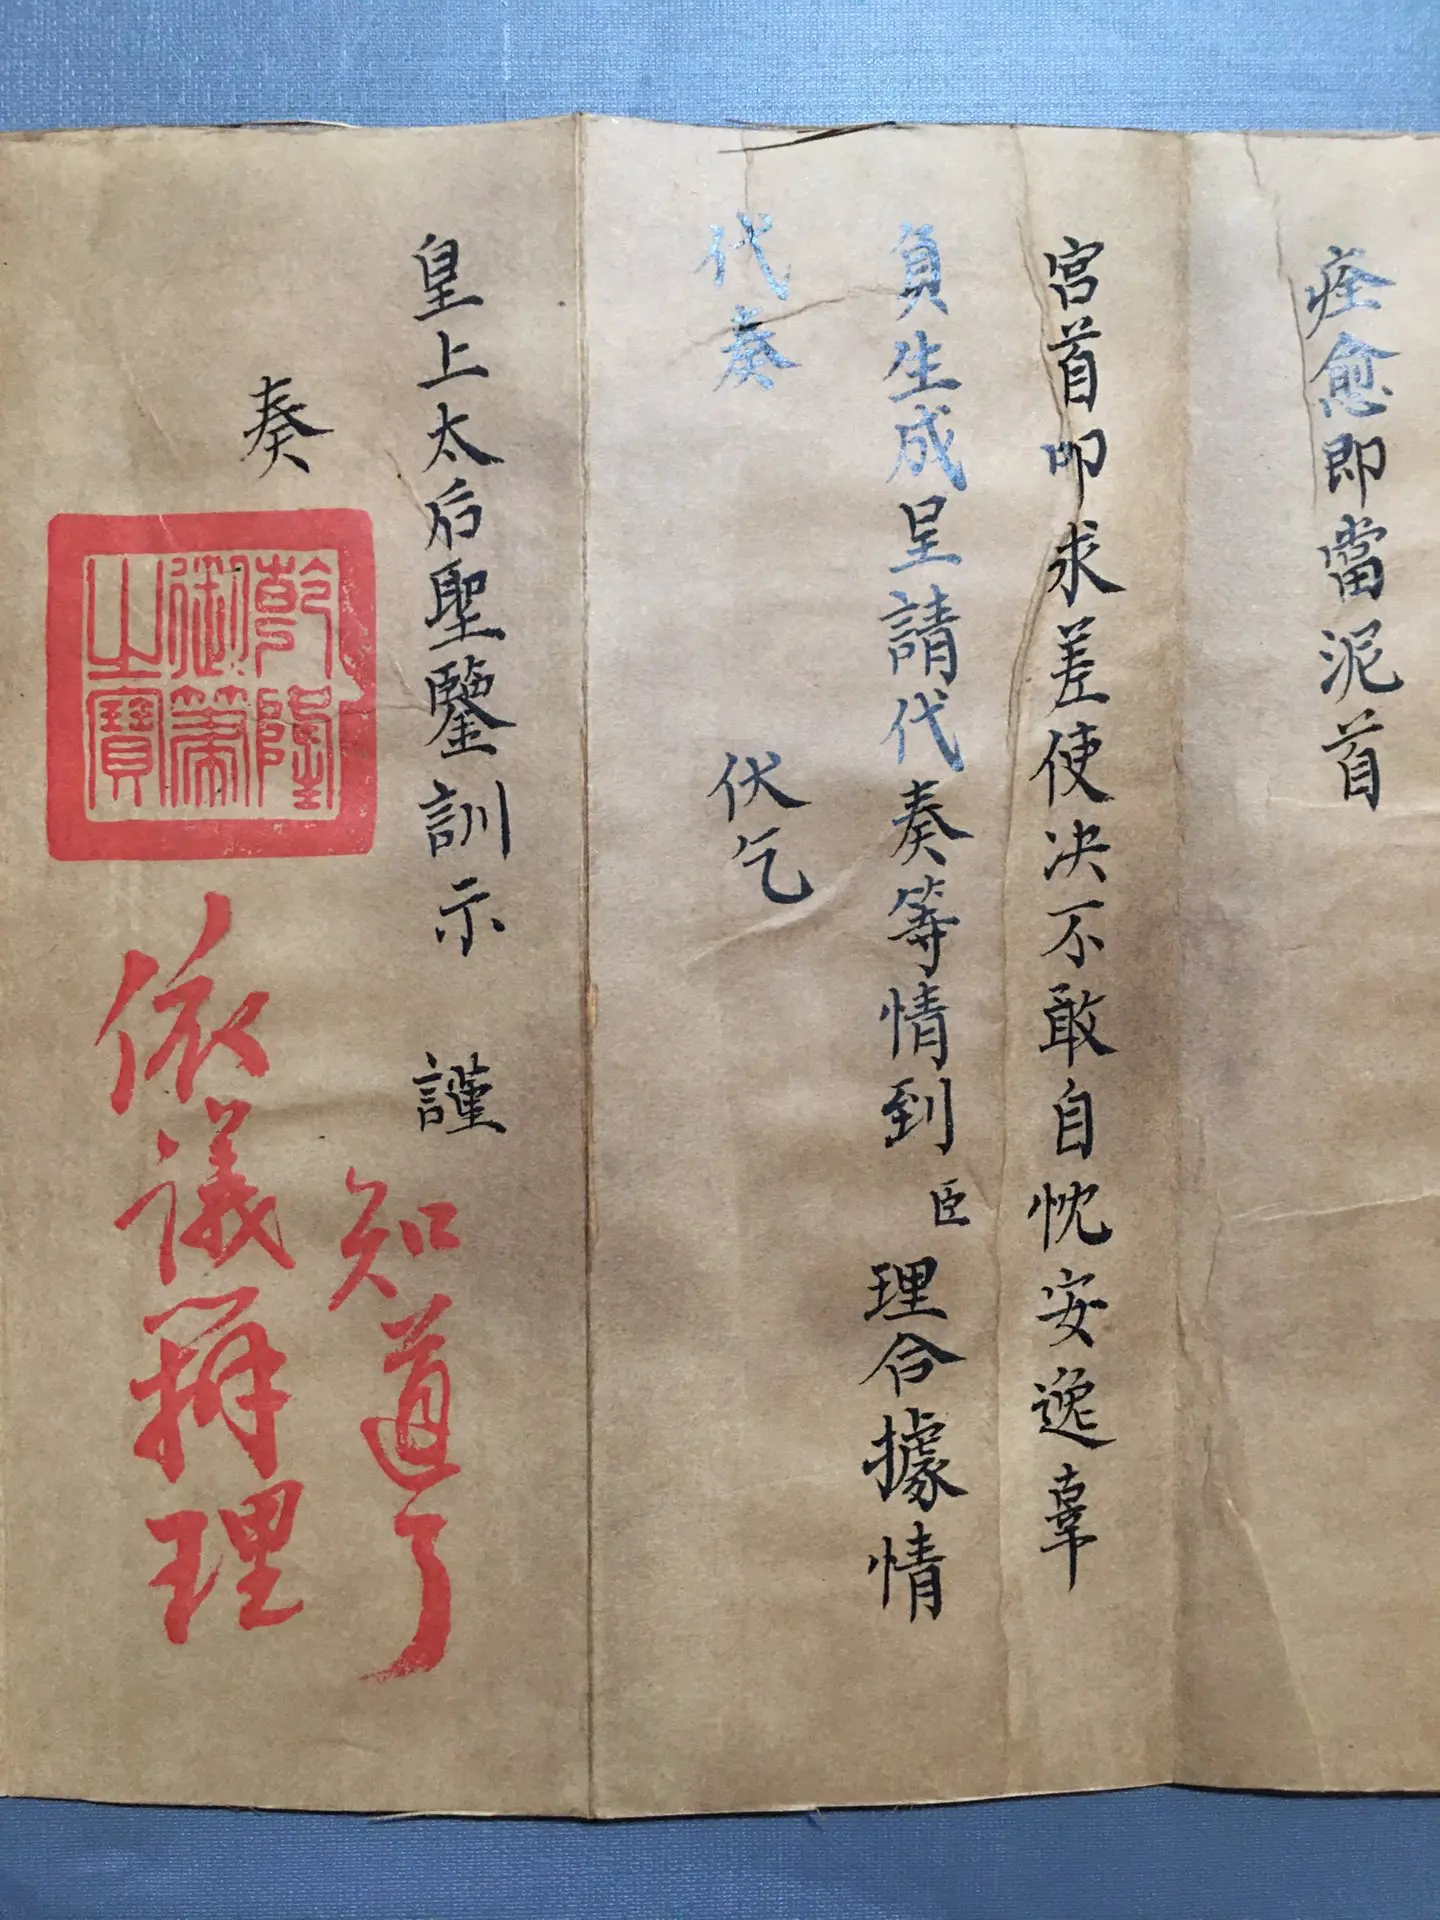 痊愈即當泥首
宮首叩求差使决不敢自忱安逸辜
負生成呈請代奏等情到臣理合據情
代奏 伏乞
皇上太后聖鑒訓示 謹
奏
乾隆
御筆
之寶
知道了
依議辦理